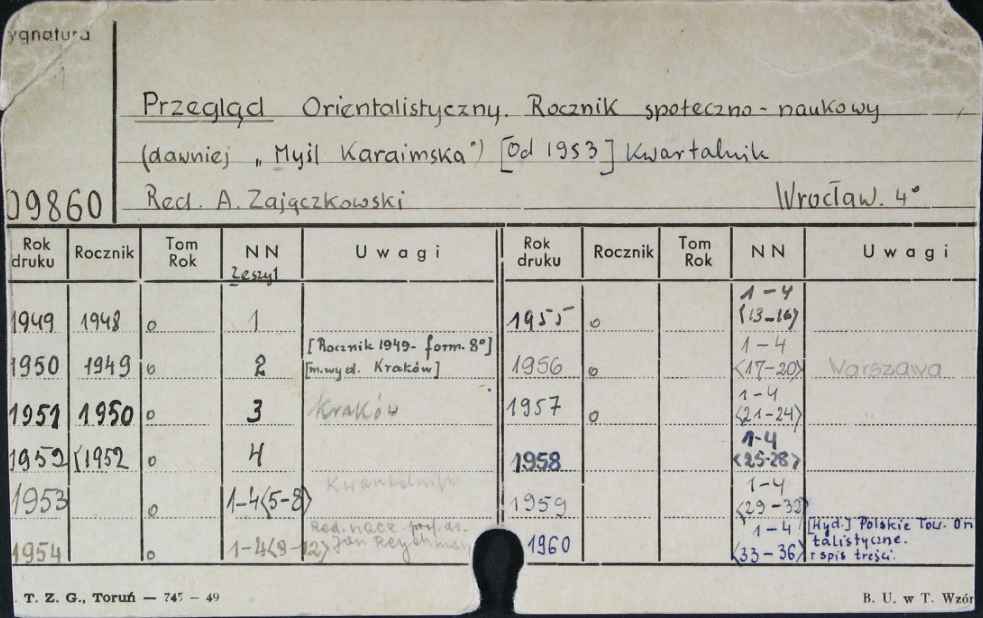 ygnatura
Przegląd Orientalistyczny. Rocznik społeczno-naukowy
(dawniej „Myśl Karaimska") [Od 1953] Kwartalnik
09860 Red. A. Zajączkowski Wrocław. 4°
Rok druku Rocznik Tom Rok NN Zeszyt Uwagi Rok druku Rocznik Tom Rok NN Uwagi
1949 1948 o 1 1955 o 1-4 <13-16>
1950 1949 o 2 [Rocznik 1949- form. 8°] [m. wyd. Kraków] 1956 o 1-4 <17-20> Warszawa
1951 1950 o 3 Kraków 1957 o 1-4 <21-24>
1952 <1952 o 4 1958 1-4 <25-28>
1953 o 1-4<5-8> Kwartalnik 1959 1-4
1954 o 1-4<9-12> Red. nacz. prof. dr. Jan Reychman 1960 1-4 <33-36> [Wyd.] Polskie Tow. Ori
talistyczne.
+ spis treści.
. T. Z. G., Toruń — 745 - 49 B. U. w T. Wzór